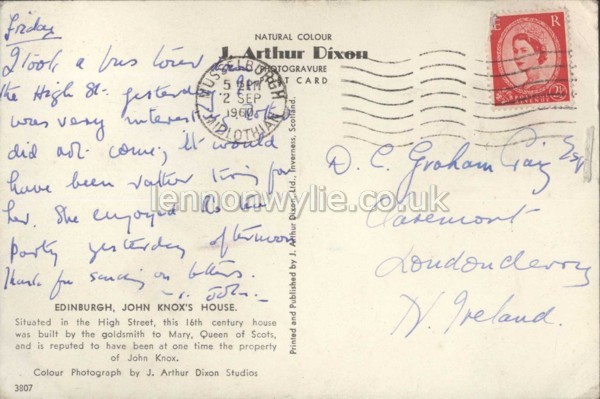 Friday
I took a bus tour
the High St. yesterday
was very interest
did not come; it would
have been rather tiring for
her. She enjoyed
party yesterday afternoon
Thanks for sending on letters.
NATURAL COLOUR
J. Arthur Dixon
PHOTOGRAVURE
POST CARD
MUSSELBURGH
5
2 SEP
196
MIDLOTHIAN
E R
D. C. Graham Craig Esq
Claremont
Londonderry
N. Ireland.
lennonwylie.co.uk
Printed and Published by J. Arthur Dixon Ltd., Inverness, Scotland.
EDINBURGH, JOHN KNOX'S HOUSE.
Situated in the High Street, this 16th century house
was built by the goldsmith to Mary, Queen of Scots,
and is reputed to have been at one time the property
of John Knox.
Colour Photograph by J. Arthur Dixon Studios
3807